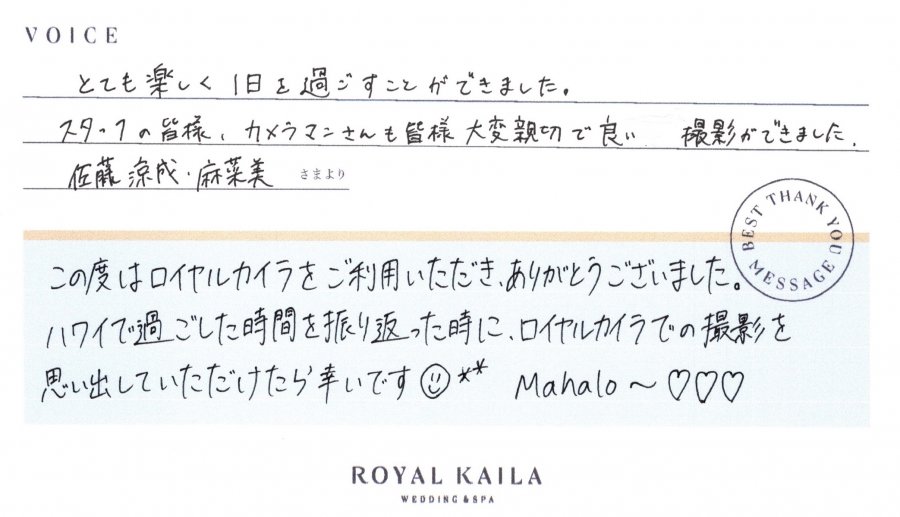 VOICE
とても楽しく1日を過ごすことができました。
スタッフの皆様、カメラマンさんも皆様大変親切で良い 撮影ができました。
佐藤涼成・麻菜美 さまより
BEST THANK YOU MESSAGE
この度はロイヤルカイラをご利用いただき、ありがとうございました。
ハワイで過ごした時間を振り返った時に、ロイヤルカイラでの撮影を
思い出していただけたら幸いです☺** Mahalo〜♡♡♡
ROYAL KAILA
WEDDING & SPA